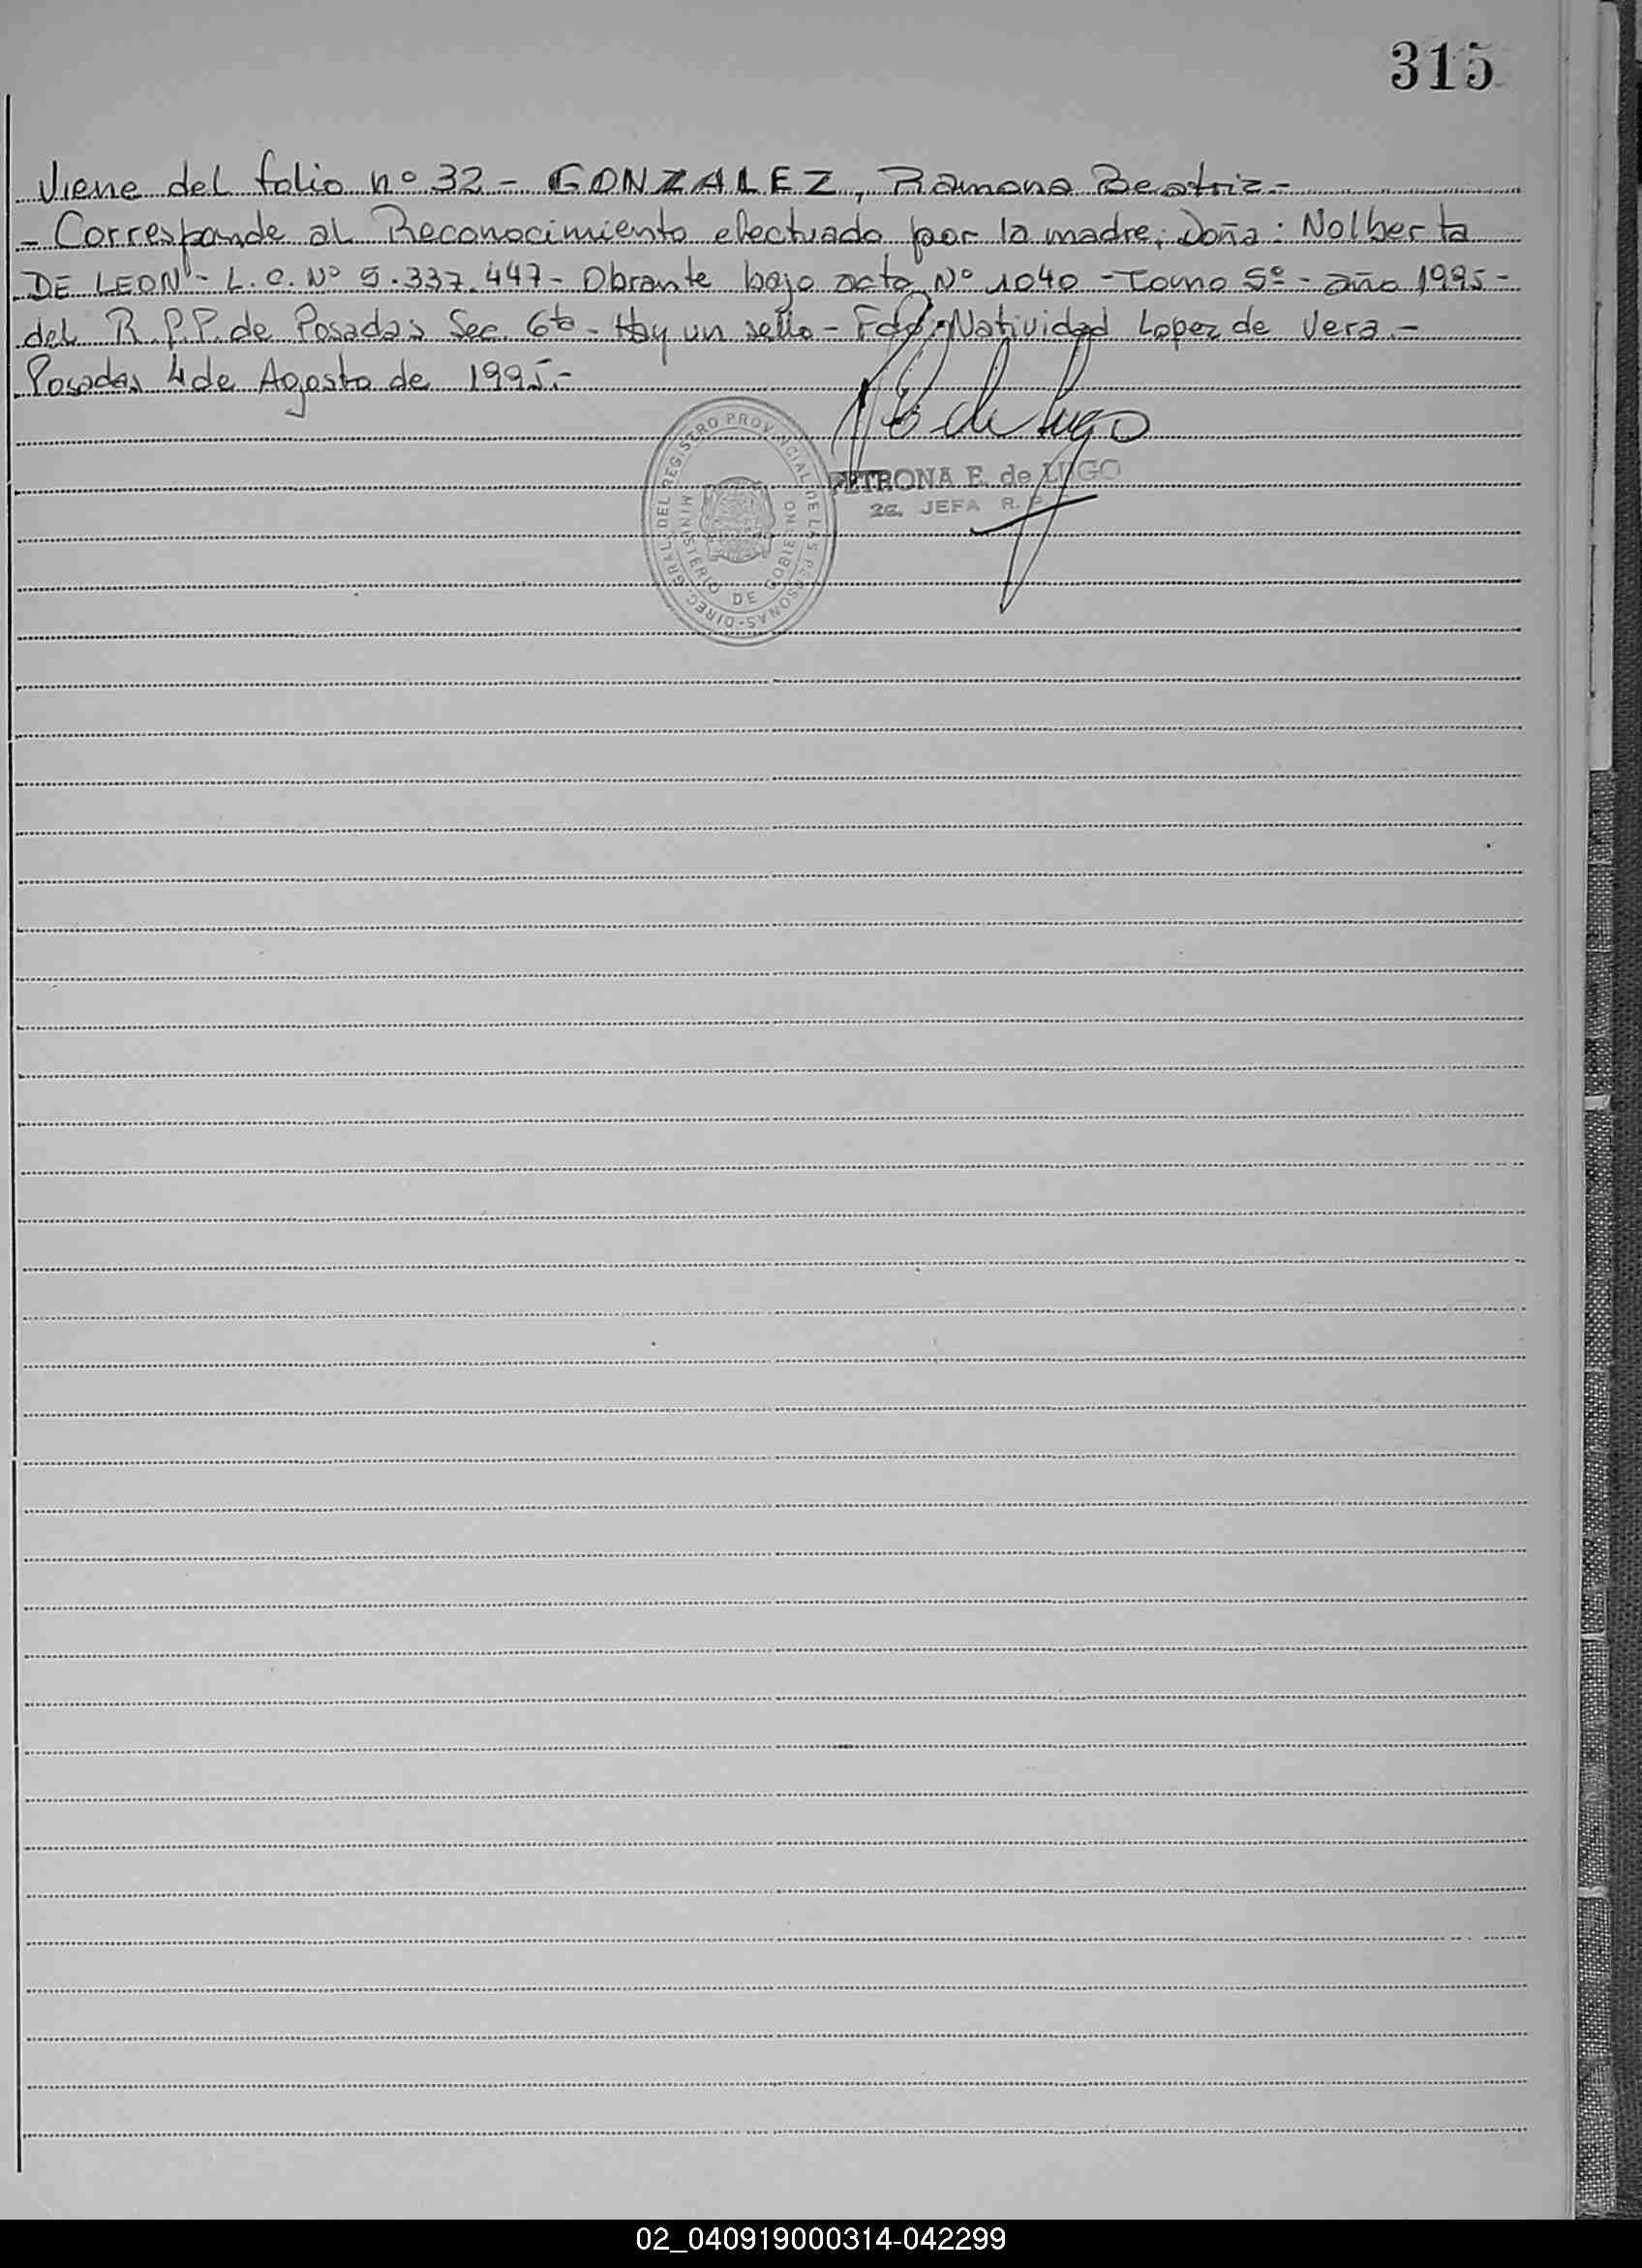 315
Viene del folio nº 32 - GONZALEZ, Ramona Beatriz -
- Corresponde al Reconocimiento efectuado por la madre; Doña: Nolberta
DE LEON - L.C. Nº 5.337.447 - Obrante bajo acta Nº 1040 - Tomo 5º - año 1995 -
del R.P.P. de Posadas Sec. 6ta - Hay un sello - Fdo: Natividad Lopez de Vera. -
Posadas 4 de Agosto de 1995. -
P E de Lugo
PETRONA E. de LUGO
2a. JEFA R. P.
DIREC. GRAL. DEL REGISTRO PROVINCIAL DE LAS PERSONAS -
MINISTERIO DE GOBIERNO
02_040919000314-042299